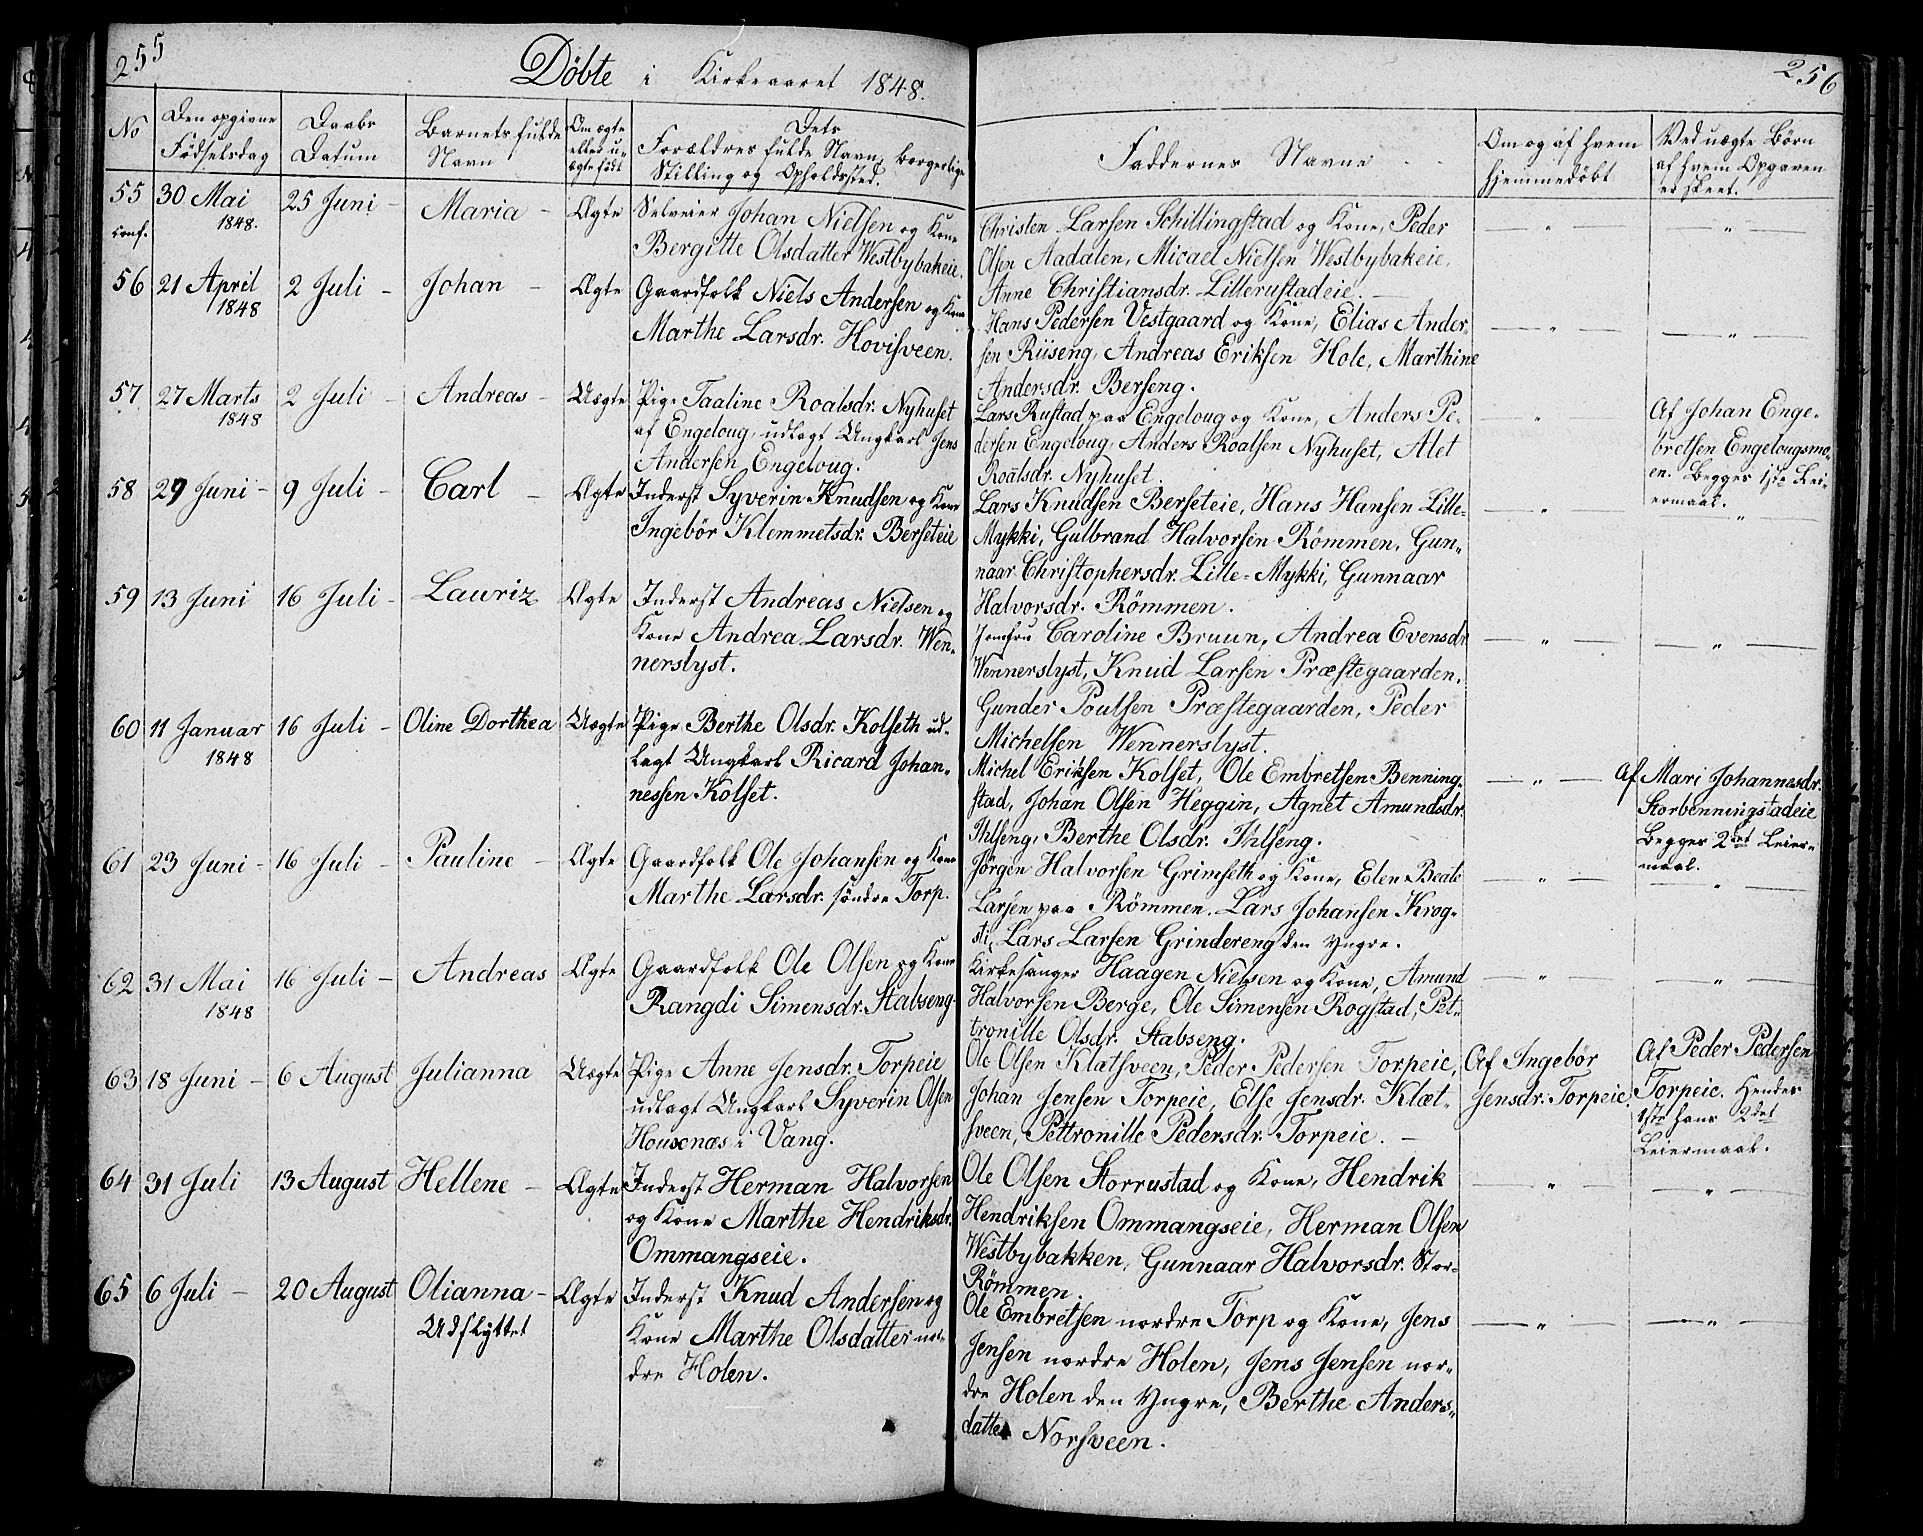 255
Döbte i Kirkeaaret 1848.
No
Den opgivne Fødselsdag
Daabs Datum
Barnets fulde Navn
Om ægte eller uægte født
Dets Forældres fulde Navn, borgerlige Stilling og Opholdssted.
55 30 Mai 25 Juni - Maria - Ægte Selveier Johan Nielsen og Kone
conf. 1848. Bergitte Olsdatter Westbybakeie.
56 21 April 2 Juli - Johan - Ægte Gaardfolk Niels Andersen og Kone
1848 Marthe Larsdr. Hovisveen.
57 27 Marts 2 Juli - Andreas - Uægte Pige Taaline Roalsdr. Nyhuset
1848 af Engeloug, udlagt Ungkarl Jens
Andersen Engeloug.
58 29 Juni - 9 Juli - Carl - Ægte Inderst Syverin Knudsen og Kone
Ingebör Klemmetsdr. Berseteie
59 13 Juni 16 Juli - Lauriz Ægte Inderst Andreas Nielsen og
Kone Andrea Larsdr. Wen-
nerslyst.
60 11 Januar 16 Juli - Oline Dorthea Uægte Pige Berthe Olsdr. Kolseth ud-
1848 lagt Ungkarl Ricard Johan-
nessen Kolset.
61 23 Juni - 16 Juli - Pauline - Ægte Gaardfolk Ole Johansen og Kone
Marthe Larsdr. söndre Torp.
62 31 Mai 16 Juli - Andreas Ægte Gaardfolk Ole Olsen og Kone
1848 Rangdi Simensdr. Stabseng.
63 18 Juni - 6 August Julianna Uægte Pige Anne Jensdr. Torpeie
udlagt Ungkarl Syverin Olsen
Housenæs i Vang.
64 31 Juli 13 August Hellene - Ægte Inderst Herman Halvorsen
og Kone Marthe Hendriksdr.
Ommangseie.
65 6 Juli - 20 August Olianna - Ægte Inderst Knud Andersen og
Udflyttet Kone Marthe Olsdatter nor-
dre Holen.
256
Faddernes Navne
Om og af hvem hjemmedöbt
Ved uægte Børn af hvem Opgaven er skeet.
Christen Larsen Schillingstad og Kone, Peder - " - - " -
Olsen Aadalen, Micael Nielsen Westbybakeie,
Anne Christiansdr. Lillerustadeie. -
Hans Pedersen Vestgaard og Kone, Elias Ander- - " - - " -
sen Riiseng, Andreas Eriksen Hole, Marthine
Andersdr. Berseng.
Lars Rustad paa Engeloug og Kone, Anders Pe- " Af Johan Enge-
dersen Engeloug, Anders Roalsen Nyhuset, Alet bretsen Engelougsmo-
Roalsdr. Nyhuset. en. Begges 1ste Lei-
ermaal.
Lars Knudsen Berseteie, Hans Hansen Lille- - " - - " -
Mykki, Gulbrand Halvorsen Römmen, Gun-
naar Christophersdr. Lille-Mykki, Gunnaar
Halvorsdr. Römmen.
Jomfru Caroline Bruun, Andrea Evensdr. - " - - " -
Wennerslyst, Knud Larsen Præstegaarden,
Gunder Poulsen Præstegaarden, Peder
Michelsen Wennerslyst.
Michel Eriksen Kolset, Ole Embretsen Benning- - " - Af Mari Johannesdr.
stad, Johan Olsen Heggin, Agnet Amundsdr. Storbenningstadeie
Ihlseng, Berthe Olsdr. Ihlseng. Begges 2det Leier-
maal.
Jörgen Halvorsen Grimseth og Kone, Elen Beate - " - - " -
Larsen paa Römmen. Lars Johansen Krog-
sti, Lars Larsen Grindereng den Yngre.
Kirkesanger Haagen Nielsen og Kone, Amund - " - - " -
Halvorsen Berge, Ole Simensen Rogstad, Pet-
tronille Olsdr. Stabseng.
Ole Olsen Klætsveen, Peder Pedersen Torpeie, Af Ingebör Af Peder Pedersen
Johan Jensen Torpeie, Else Jensdr. Klæt- Jensdr. Torpeie. Torpeie. Hendes
sveen, Pettronille Pedersdr. Torpeie. - 1ste hans 2det
Leiermaal.
Ole Olsen Storrustad og Kone, Hendrik - " - - " -
Hendriksen Ommangseie, Herman Olsen
Westbybakken, Gunnaar Halvorsdr. Stor-
Römmen.
Ole Embretsen nordre Torp og Kone, Jens - " - - " -
Jensen nordre Holen, Jens Jensen nor-
dre Holen den Yngre, Berthe Anders-
datter Norsveen.